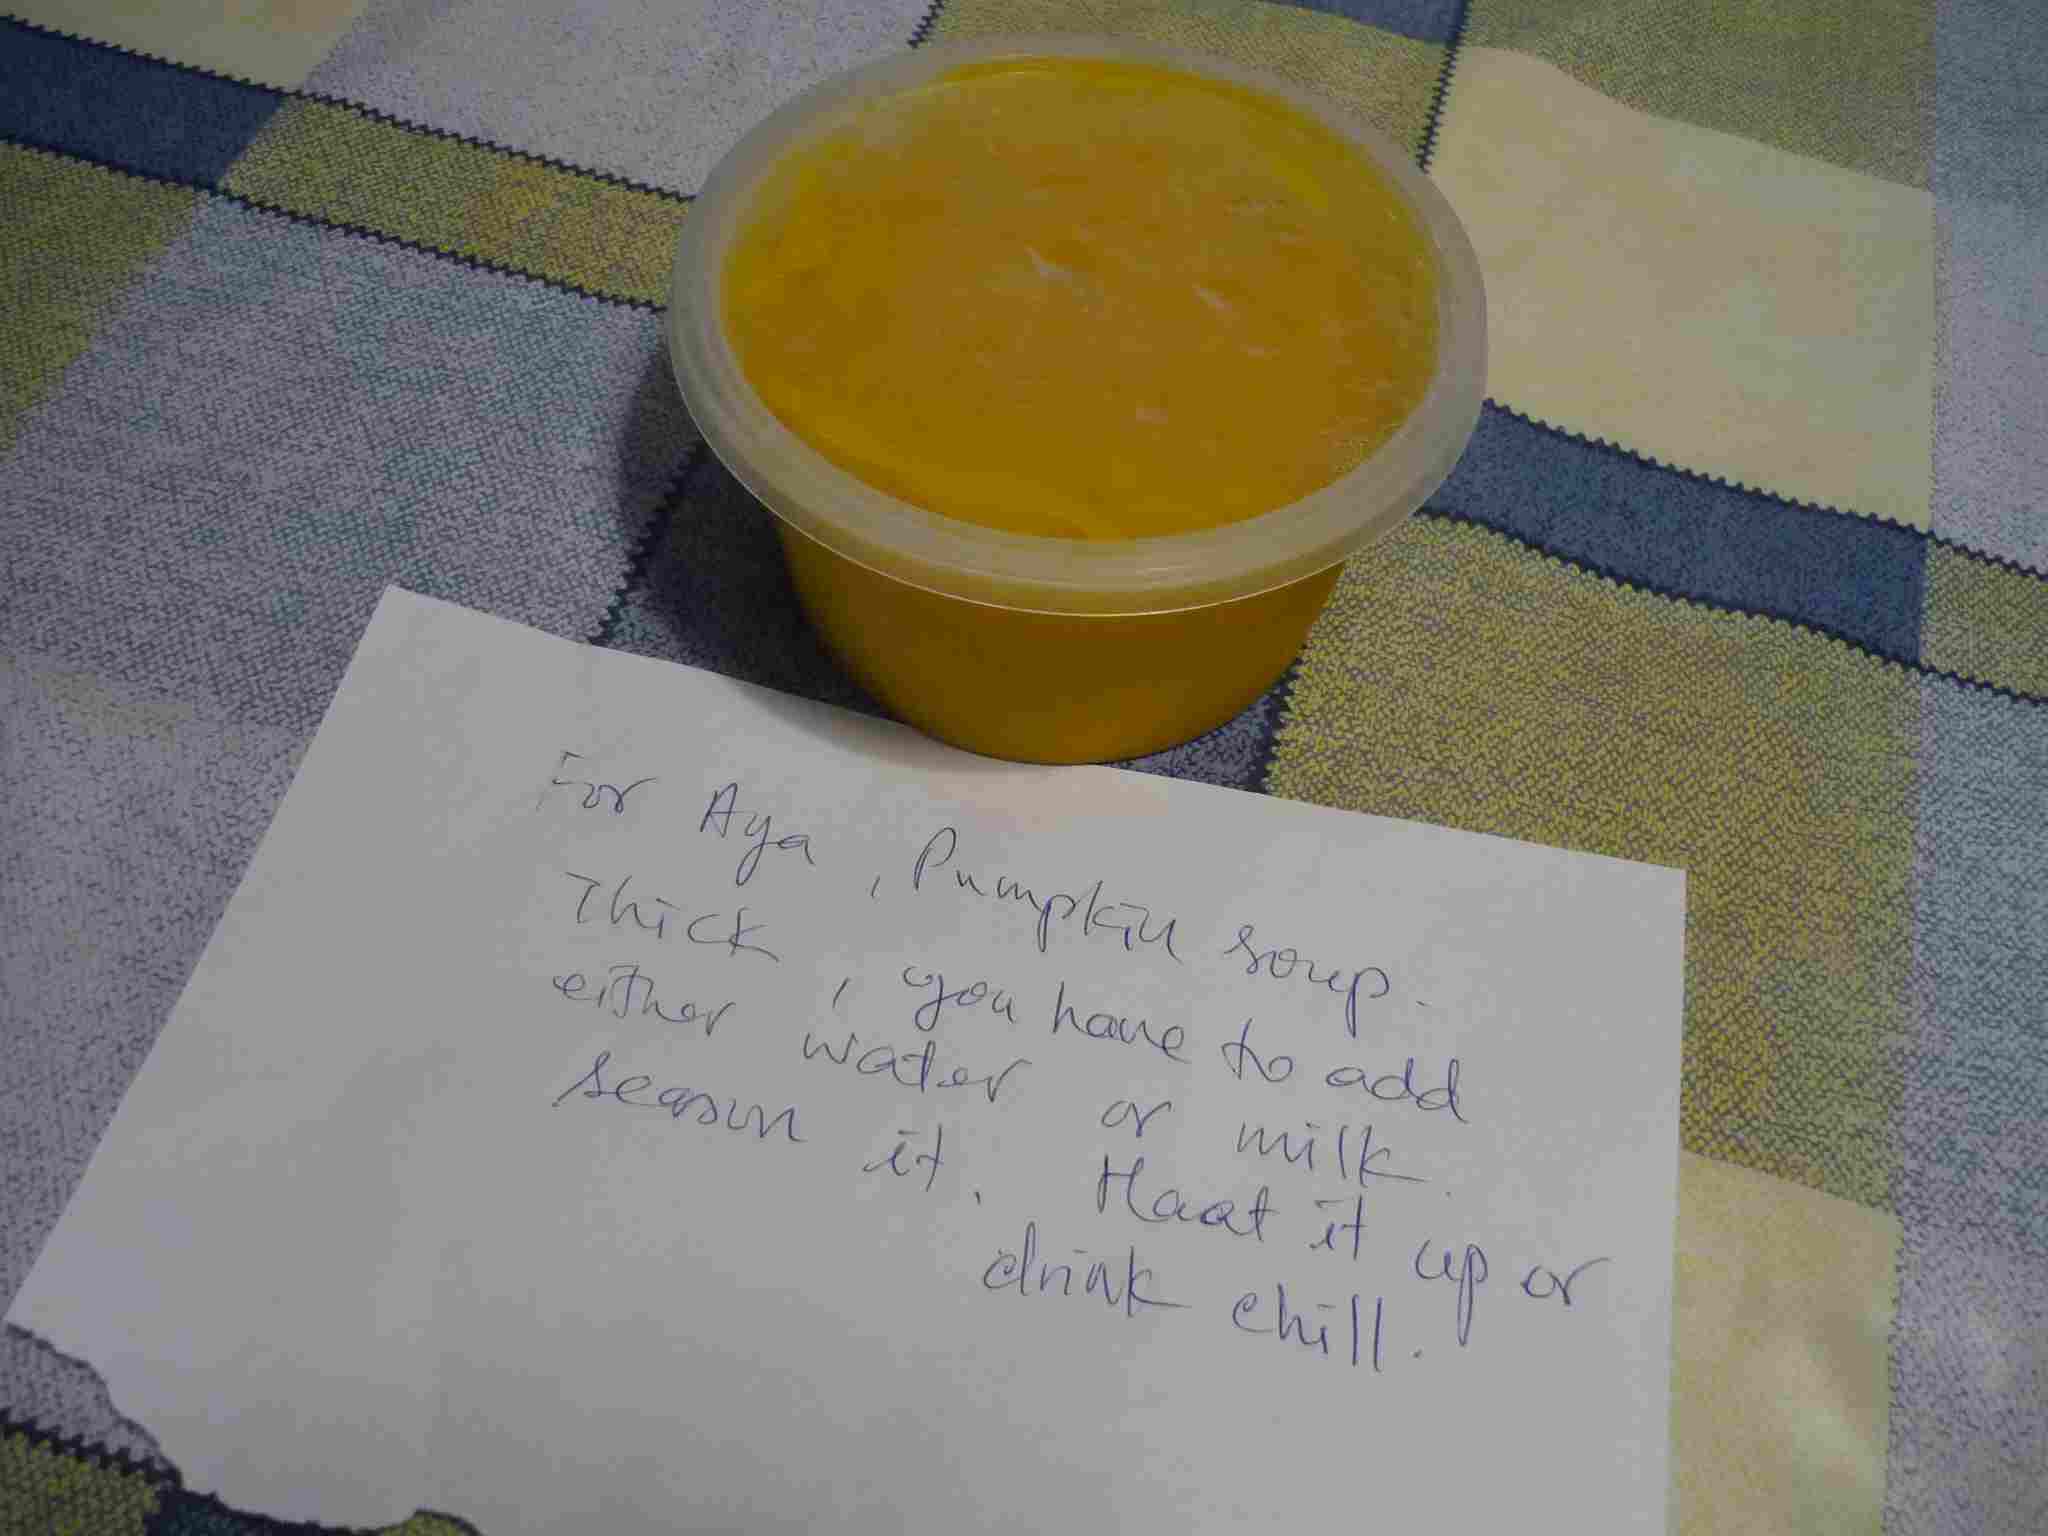 For Aya, Pumpkin soup.
Thick, you have to add
either water or milk.
season it. Haat it up or
drink chill.